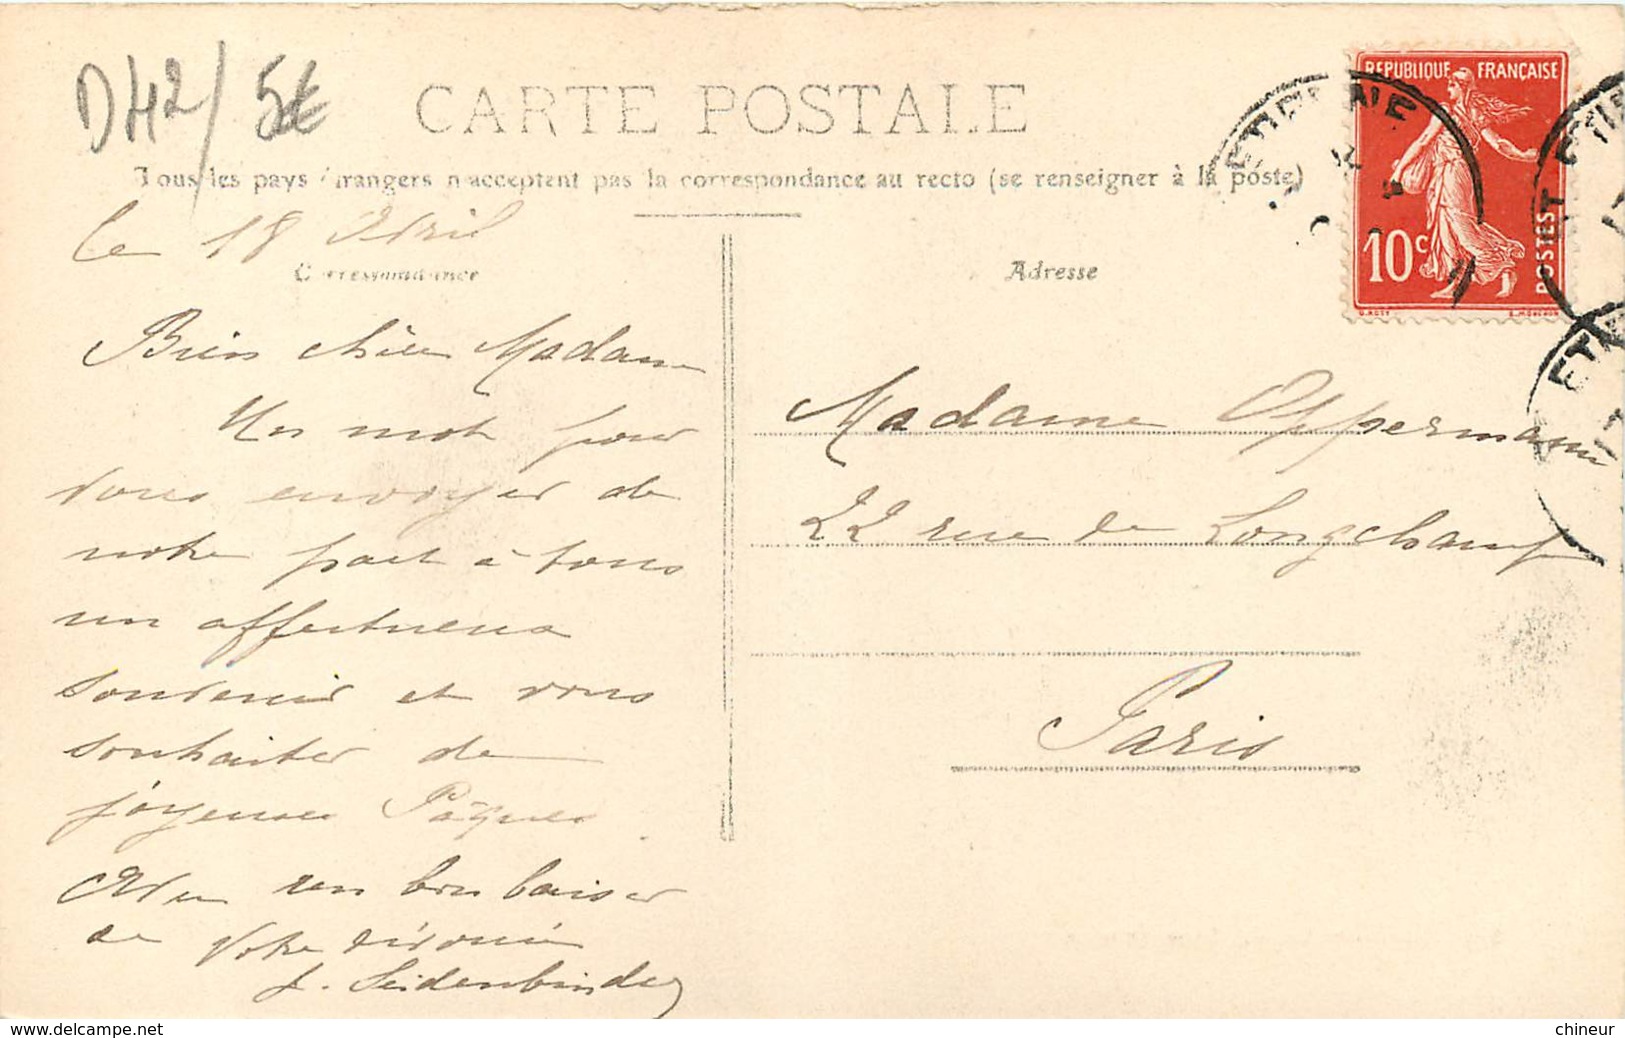 D42/5€
CARTE POSTALE
Tous les pays étrangers n'acceptent pas la correspondance au recto (se renseigner à la poste)
le 18 Avril
Correspondance
Adresse
REPUBLIQUE FRANÇAISE
10c
POSTES
O. ROTY
E. MOUCHON
ETIENNE
ST ETIE
ETIE
Bien chère Madame
Un mot pour
vous envoyer de
notre part à tous
un affectueux
souvenir et vous
souhaiter de
joyeuses Pâques
Avec un bon baiser
de Votre dévouée
J. Seidenbinder
Madame Oppermann
22 rue de Longchamp
Paris
www.delcampe.net
chineur